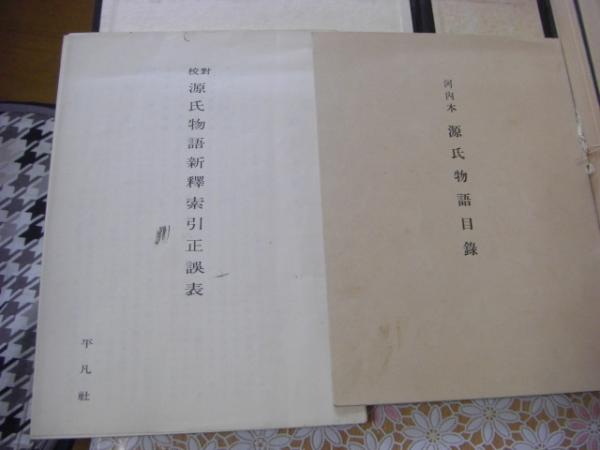 對校
源氏物語新釋索引正誤表
平凡社
河内本
源氏物語目錄